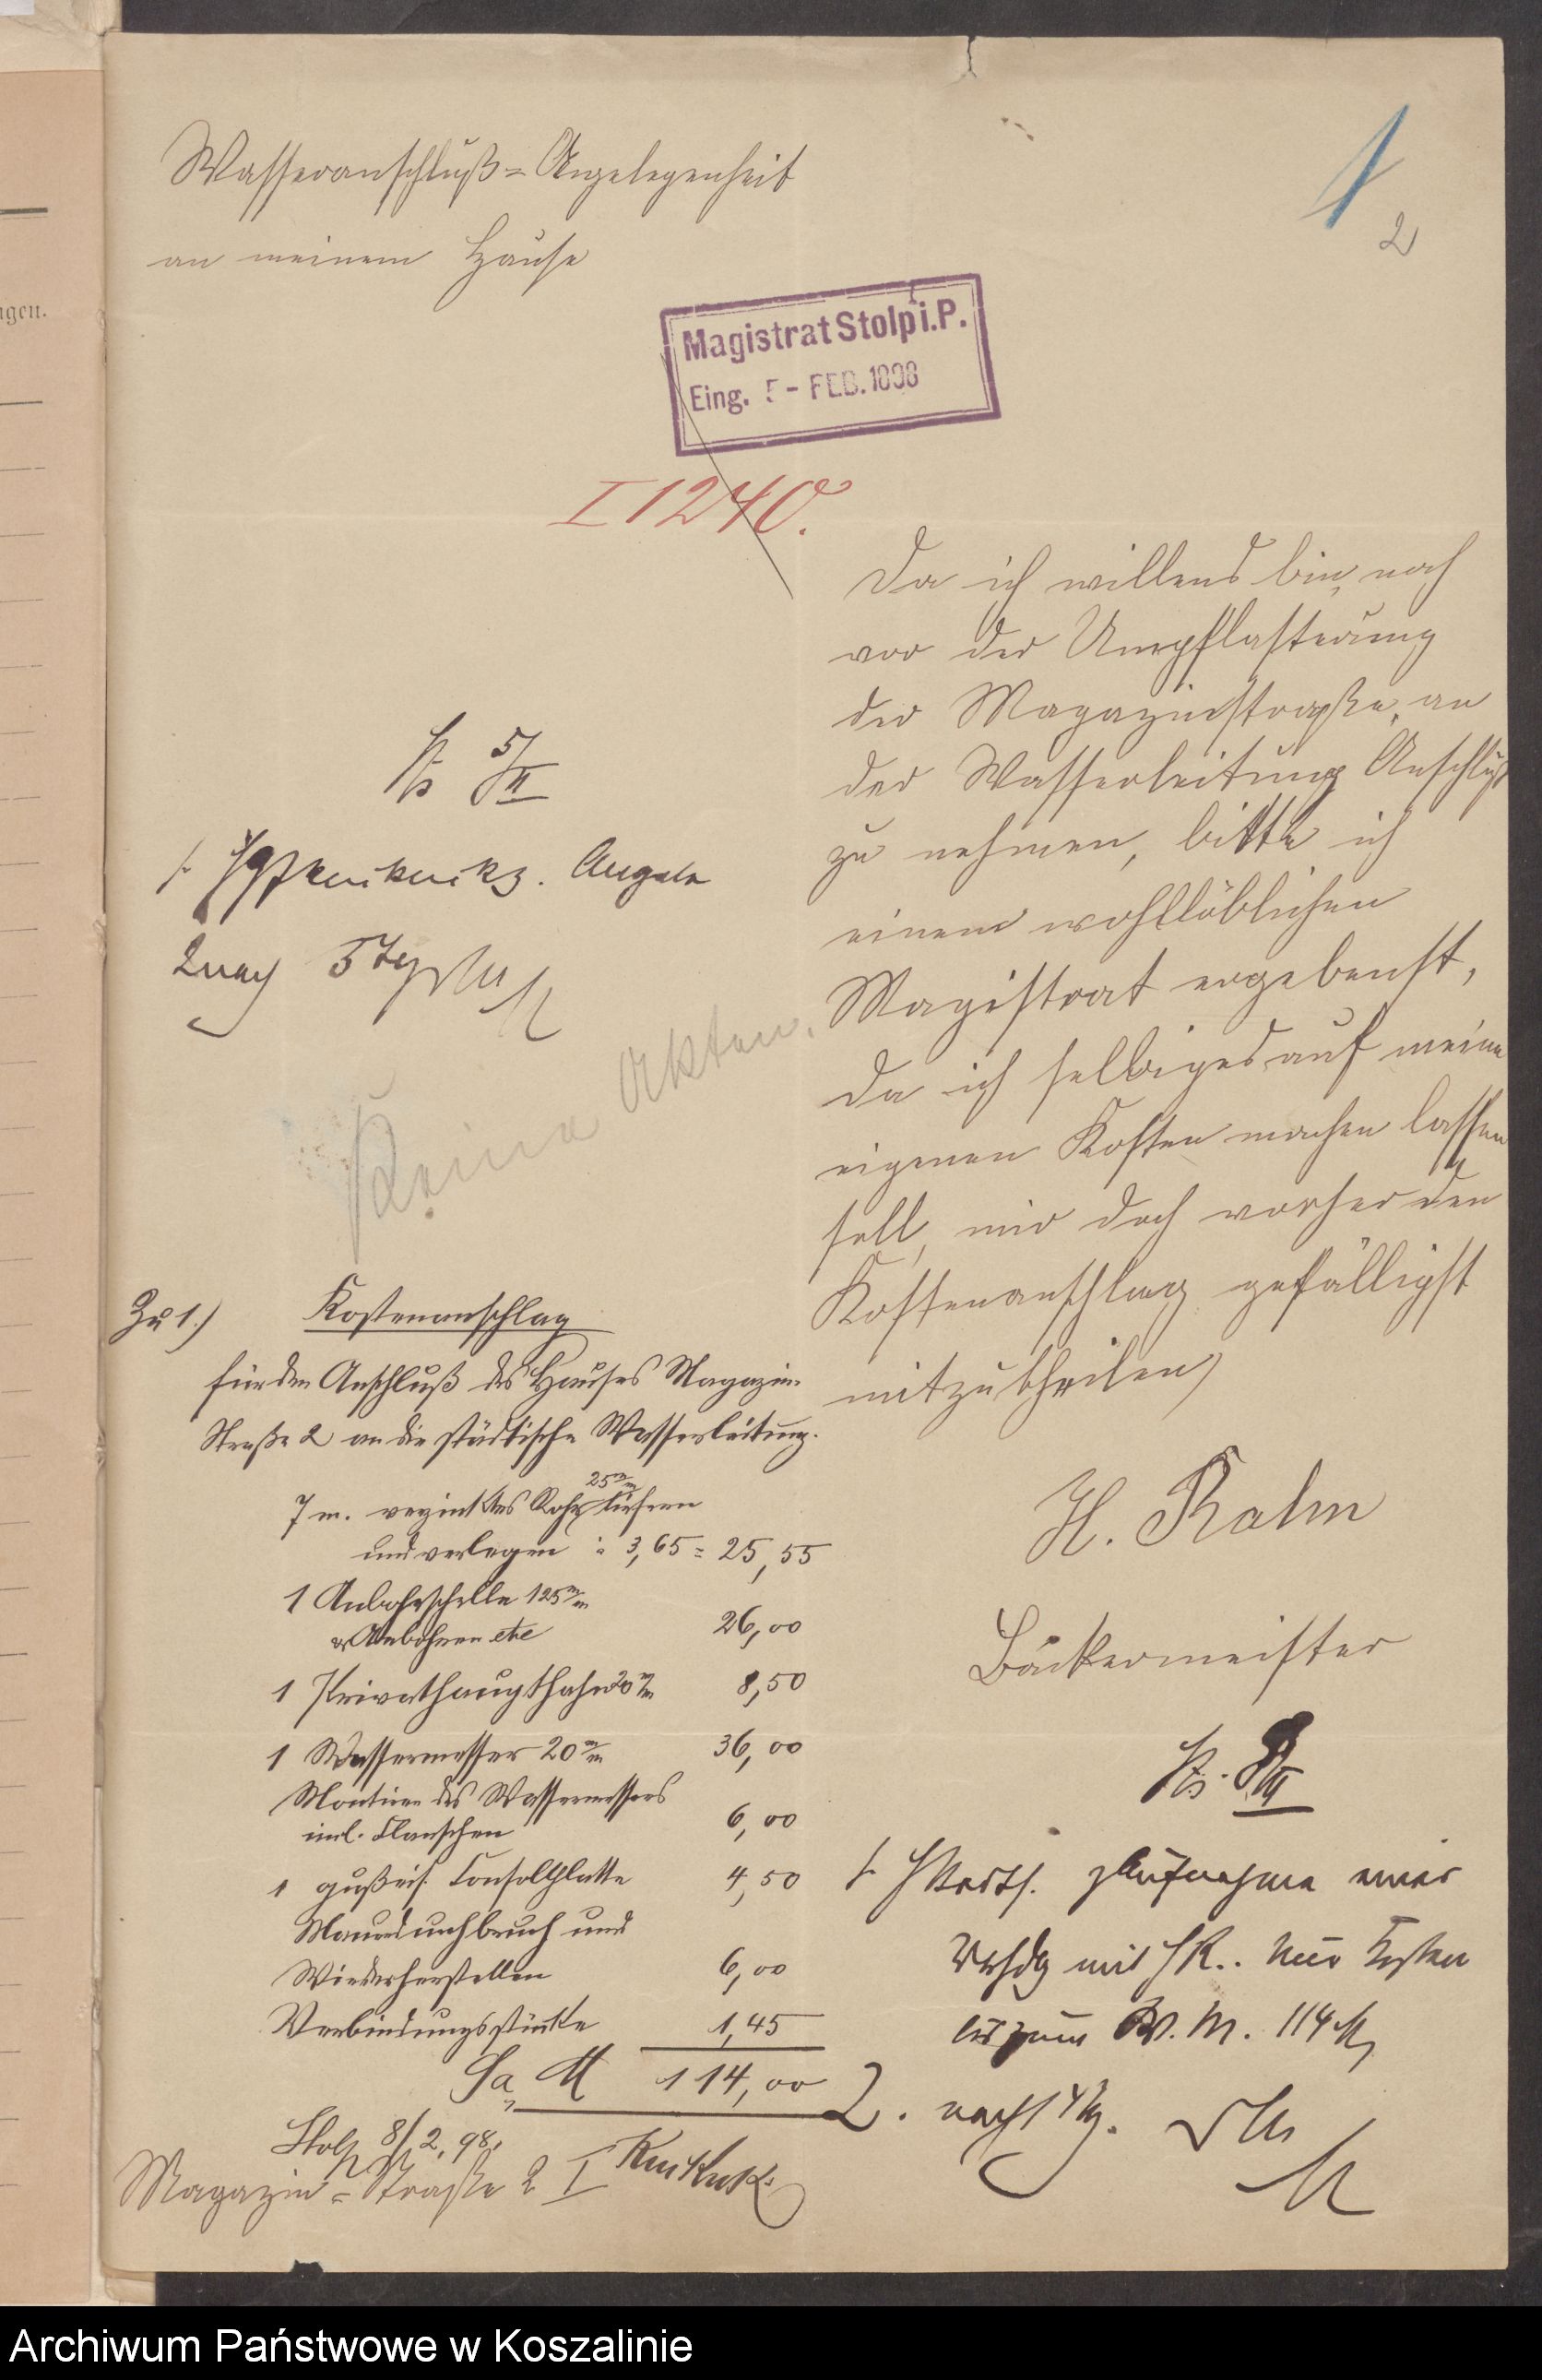 Wasseranschluß=Angelegenheit
an meinem Hause
1
2
ngen.
Magistrat Stolp i.P.
Eing. 5 - FEB. 1898
I 1240.
Da ich willens bin, noch
vor der Umpflasterung
der Magazinstraße, an
der Wasserleitung Anschluß
zu nehmen, bitte ich
einem wohllöblichen
Magistrat ergebenst,
da ich selbiges auf meine
eigenen Kosten machen lassen
soll, mir doch vorher den
Kostenanschlag gefälligst
mitzutheilen,
H. Ralm
Bäckermeister
5/II
1. z. Angabe
2. nach 3 Tg
Keine Akten.
Zu 1.) Kostenanschlag
für den Anschluß des Hauses Magazin-
Straße 2 an die städtische Wasserleitung.
7 m. verzinktes Rohr 25 m/m liefern
und verlegen à 3,65 = 25,55
1 Anbohrschelle 125 m/m
u Anbohren etc 26,00
1 Privathaupthahn 20 m/m 8,50
1 Wassermesser 20 m/m 36,00
Montiren des Wassermessers
incl. Flanschen 6,00
1 gußeis. Consolplatte 4,50
Mauerdurchbruch und
Wiederherstellen 6,00
Verbindungsstücke 1,45
Sa M 114,00
Stolp 8/2. 98.
Magazin=Straße 2 I
8/II
1. z Aufnahme einer
Vrhdlg mit H R.. Kosten
bis zum W. M. 114 M
2. nach 1 Tg.
Archiwum Państwowe w Koszalinie